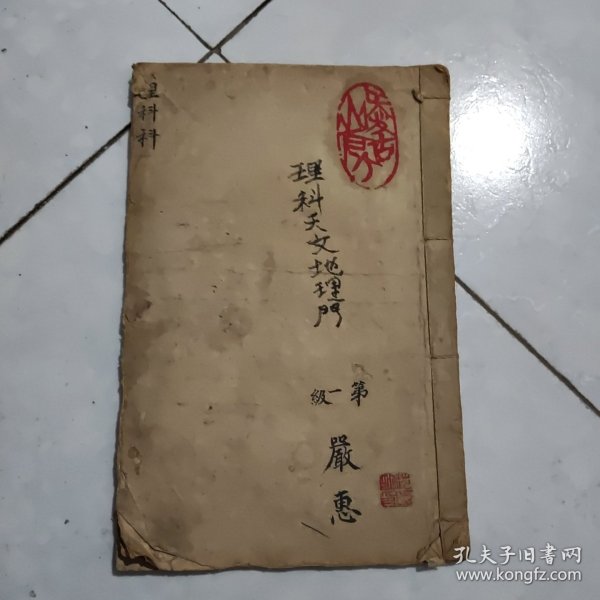 理科科
理科天文地理門
第一級
嚴惠
孔夫子旧書网
www.kongfz.com